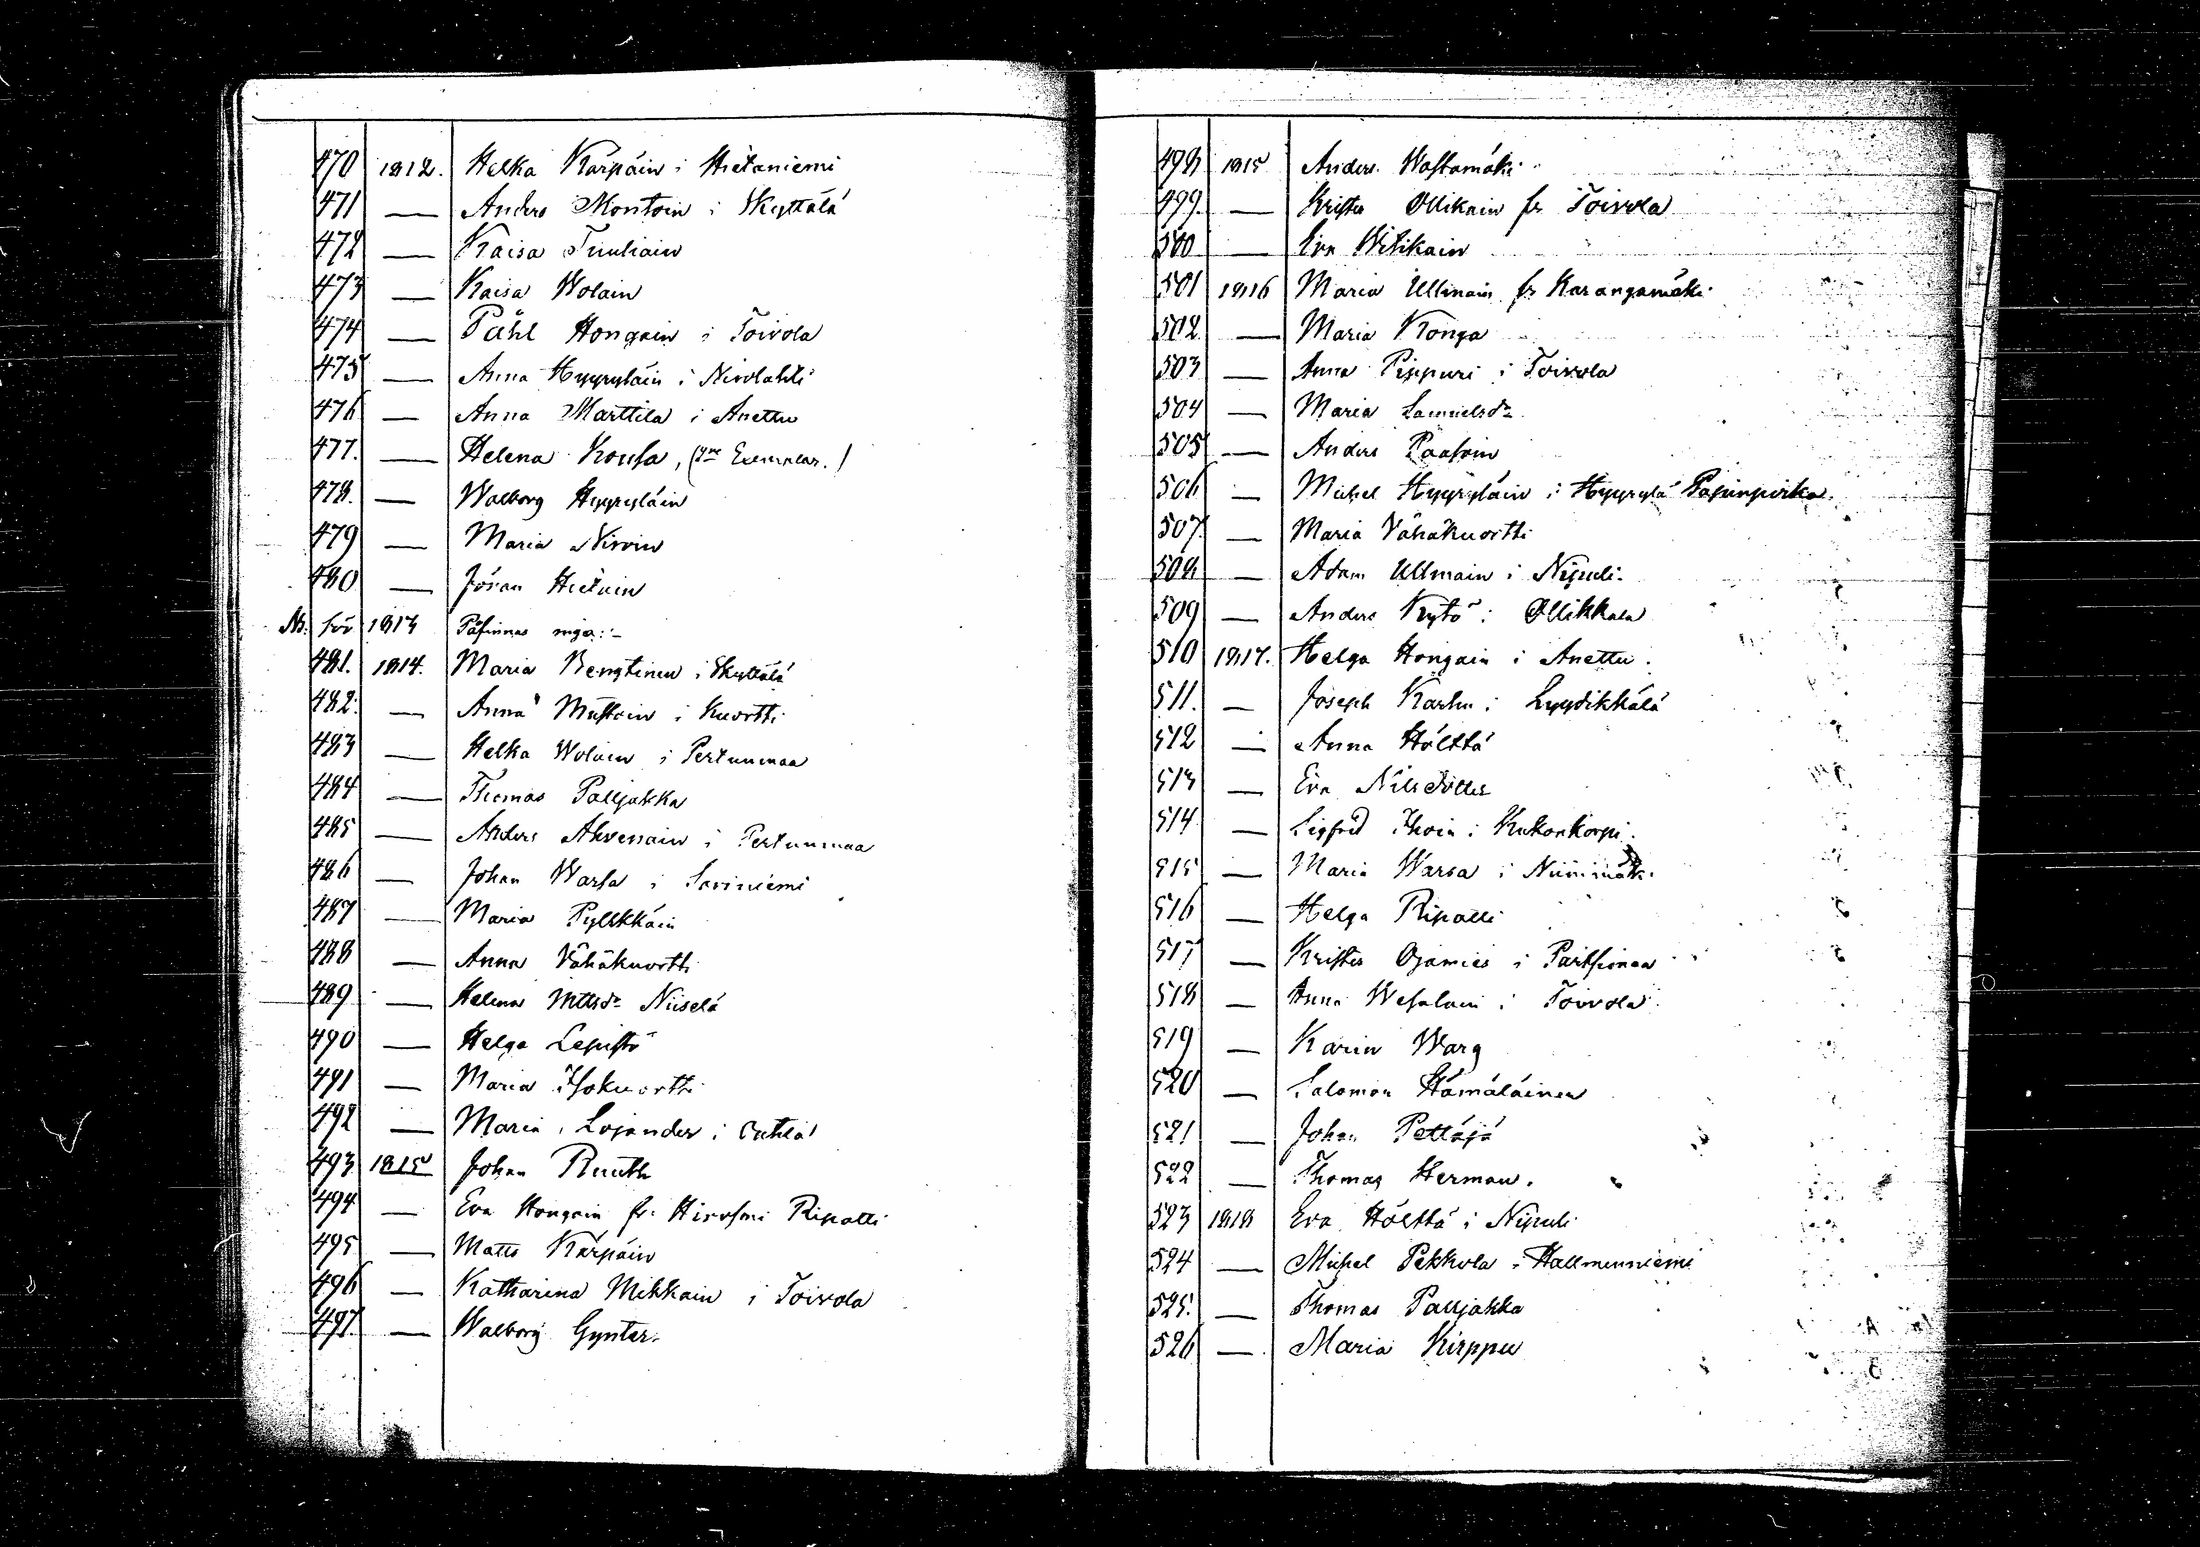 470 1812. Helka Kärpäin i Hietaniemi
471 — Anders Montoin i Skyttälä
472 — Kaisa Tuuliain
473 — Kaisa Wolain
474 — Påhl Hongain i Toivola
475 — Anna Hyyryläin i Nivolahti
476 — Anna Marttila i Anettu
477. — Helena Kousa, ( Exemplar.)
478. — Walborg Hyyryläin
479 — Maria Nirvin
480 — Jöran Hietain
Nb. för 1813 Påfinnas inga:—
481. 1814. Maria Bengtinen i Skyttälä
482. — Anna Mustoin i Kuortti
483 — Helka Wolain i Pertunmaa
484 — Thomas Palljakka
485 — Anders Ahvenain i Pertunmaa
486 — Johan Warsa i Saviniemi
487 — Maria Pyllkkäin
488 — Anna Vähäkuortti
489 — Helena Mttsdr Niiselä
490 — Helga Lepistö
491 — Maria Isokuortti
492 — Maria Lojander i
493 1815 Johan Ruuth
494 — Eva Hongain fr. Hirvsmi Ripatti
495 — Matts Kärpäin
496 — Katharina Mikkain i Toivola
497. — Walborg Gynter.
498 1815 Anders Wastamäki
499. — Krister Ollikain fr Toivola
500 — Eva Witikain
501 1816 Maria Ullmain fr Karangamäki
502 — Maria Konga
503 — Anna Pippuri i Toivola
504 — Maria Samuelsdr
505 — Anders Paasoin
506 — Michel Hyyryläin i Hyyrylä
507. — Maria Vähäkuortti
508 — Adam Ullmain i Nipuli.
509 — Anders Kytö i Ollikkala
510 1817. Helga Hongain i Anettu.
511. — Joseph Karhu i Lyydikkälä
512 — Anna Hölttä
513 — Eva Nilsdotter
514 — Sigfrid Ihoin i Kukonkorpi.
515 — Maria Warsa i Niinimäki.
516 — Helga Ripatti
517 — Krister Ojamies i Partsimaa
518 — Anna Wesalain i Toivola
519 — Karin Warg
520 — Salomon Hämäläinen
521 — Johan Pettäjä
522 — Thomas Herman.
523 1818 Eva Hölttä i Nipuli
524 — Michel Pekkola i Hallmenniemi
525. — Thomas Palljakka
526 — Maria Kirppu